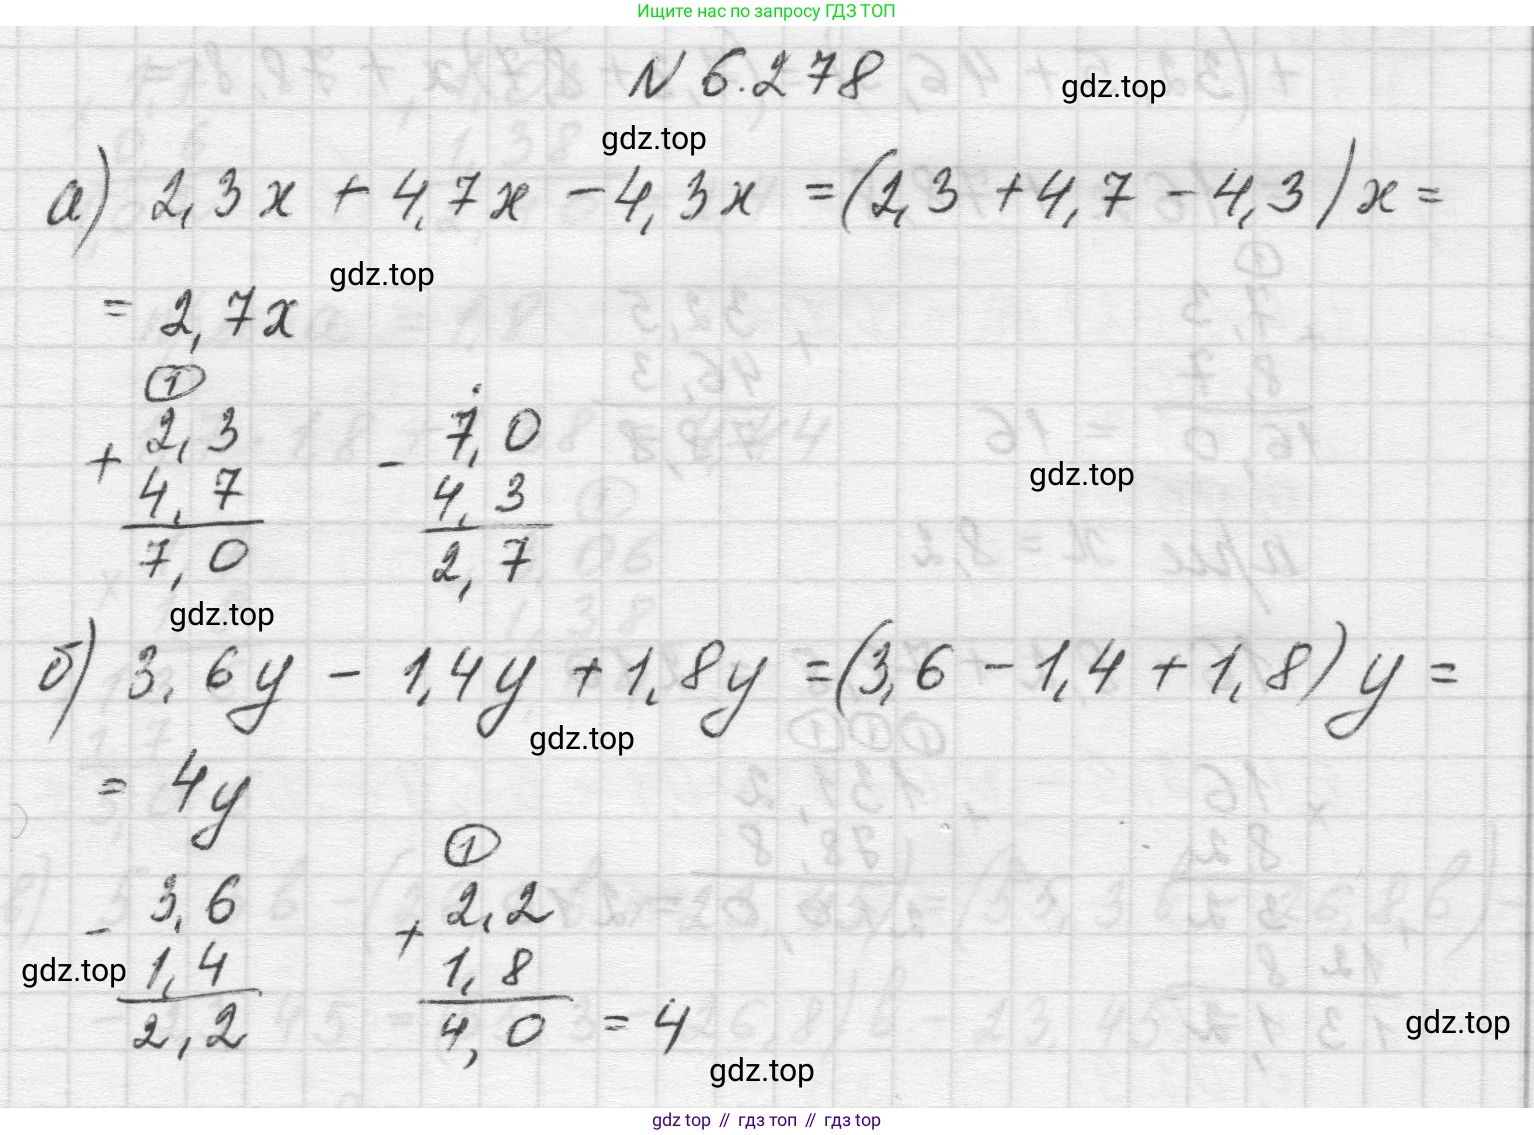 Ищите нас по запросу ГДЗ ТОП
N 6.278
gdz.top
gdz.top
а) 2,3x + 4,7x - 4,3x = (2,3 + 4,7 - 4,3)x =
gdz.top
= 2,7x
1
+ 2,3 - 7,0
4,7 4,3
7,0 2,7
gdz.top
gdz.top
б) 3,6y - 1,4y + 1,8y = (3,6 - 1,4 + 1,8)y =
gdz.top
= 4y
1
- 3,6 + 2,2
gdz.top 1,4 1,8
2,2 4,0 = 4
gdz.top
gdz.top
gdz top // гдз топ // гдз top